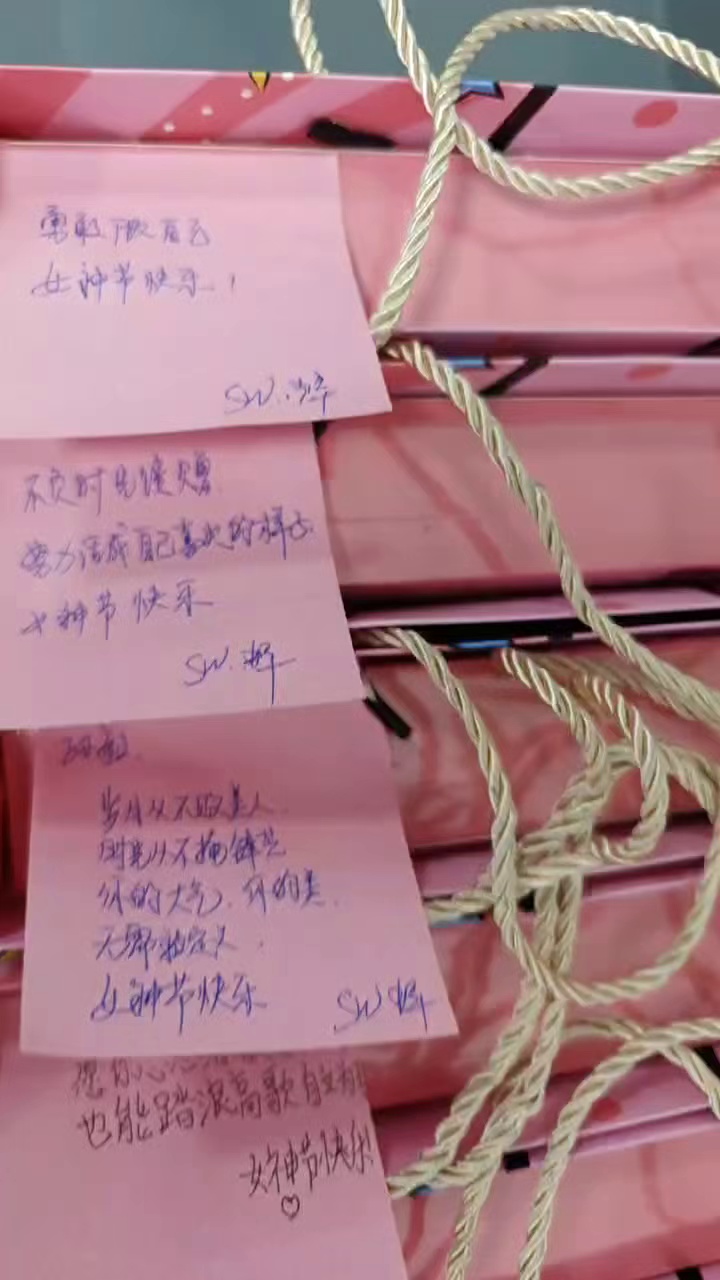 勇敢做自己
女神节快乐！
SW.
不负时光
努力活成自己喜欢的样子
女神节快乐
SW.
岁月从不败美人
时光从不掩锋芒
你的大气，你的美
无需被定义
女神节快乐
SW
愿你
也能踏浪高歌自
女神节快乐
♡